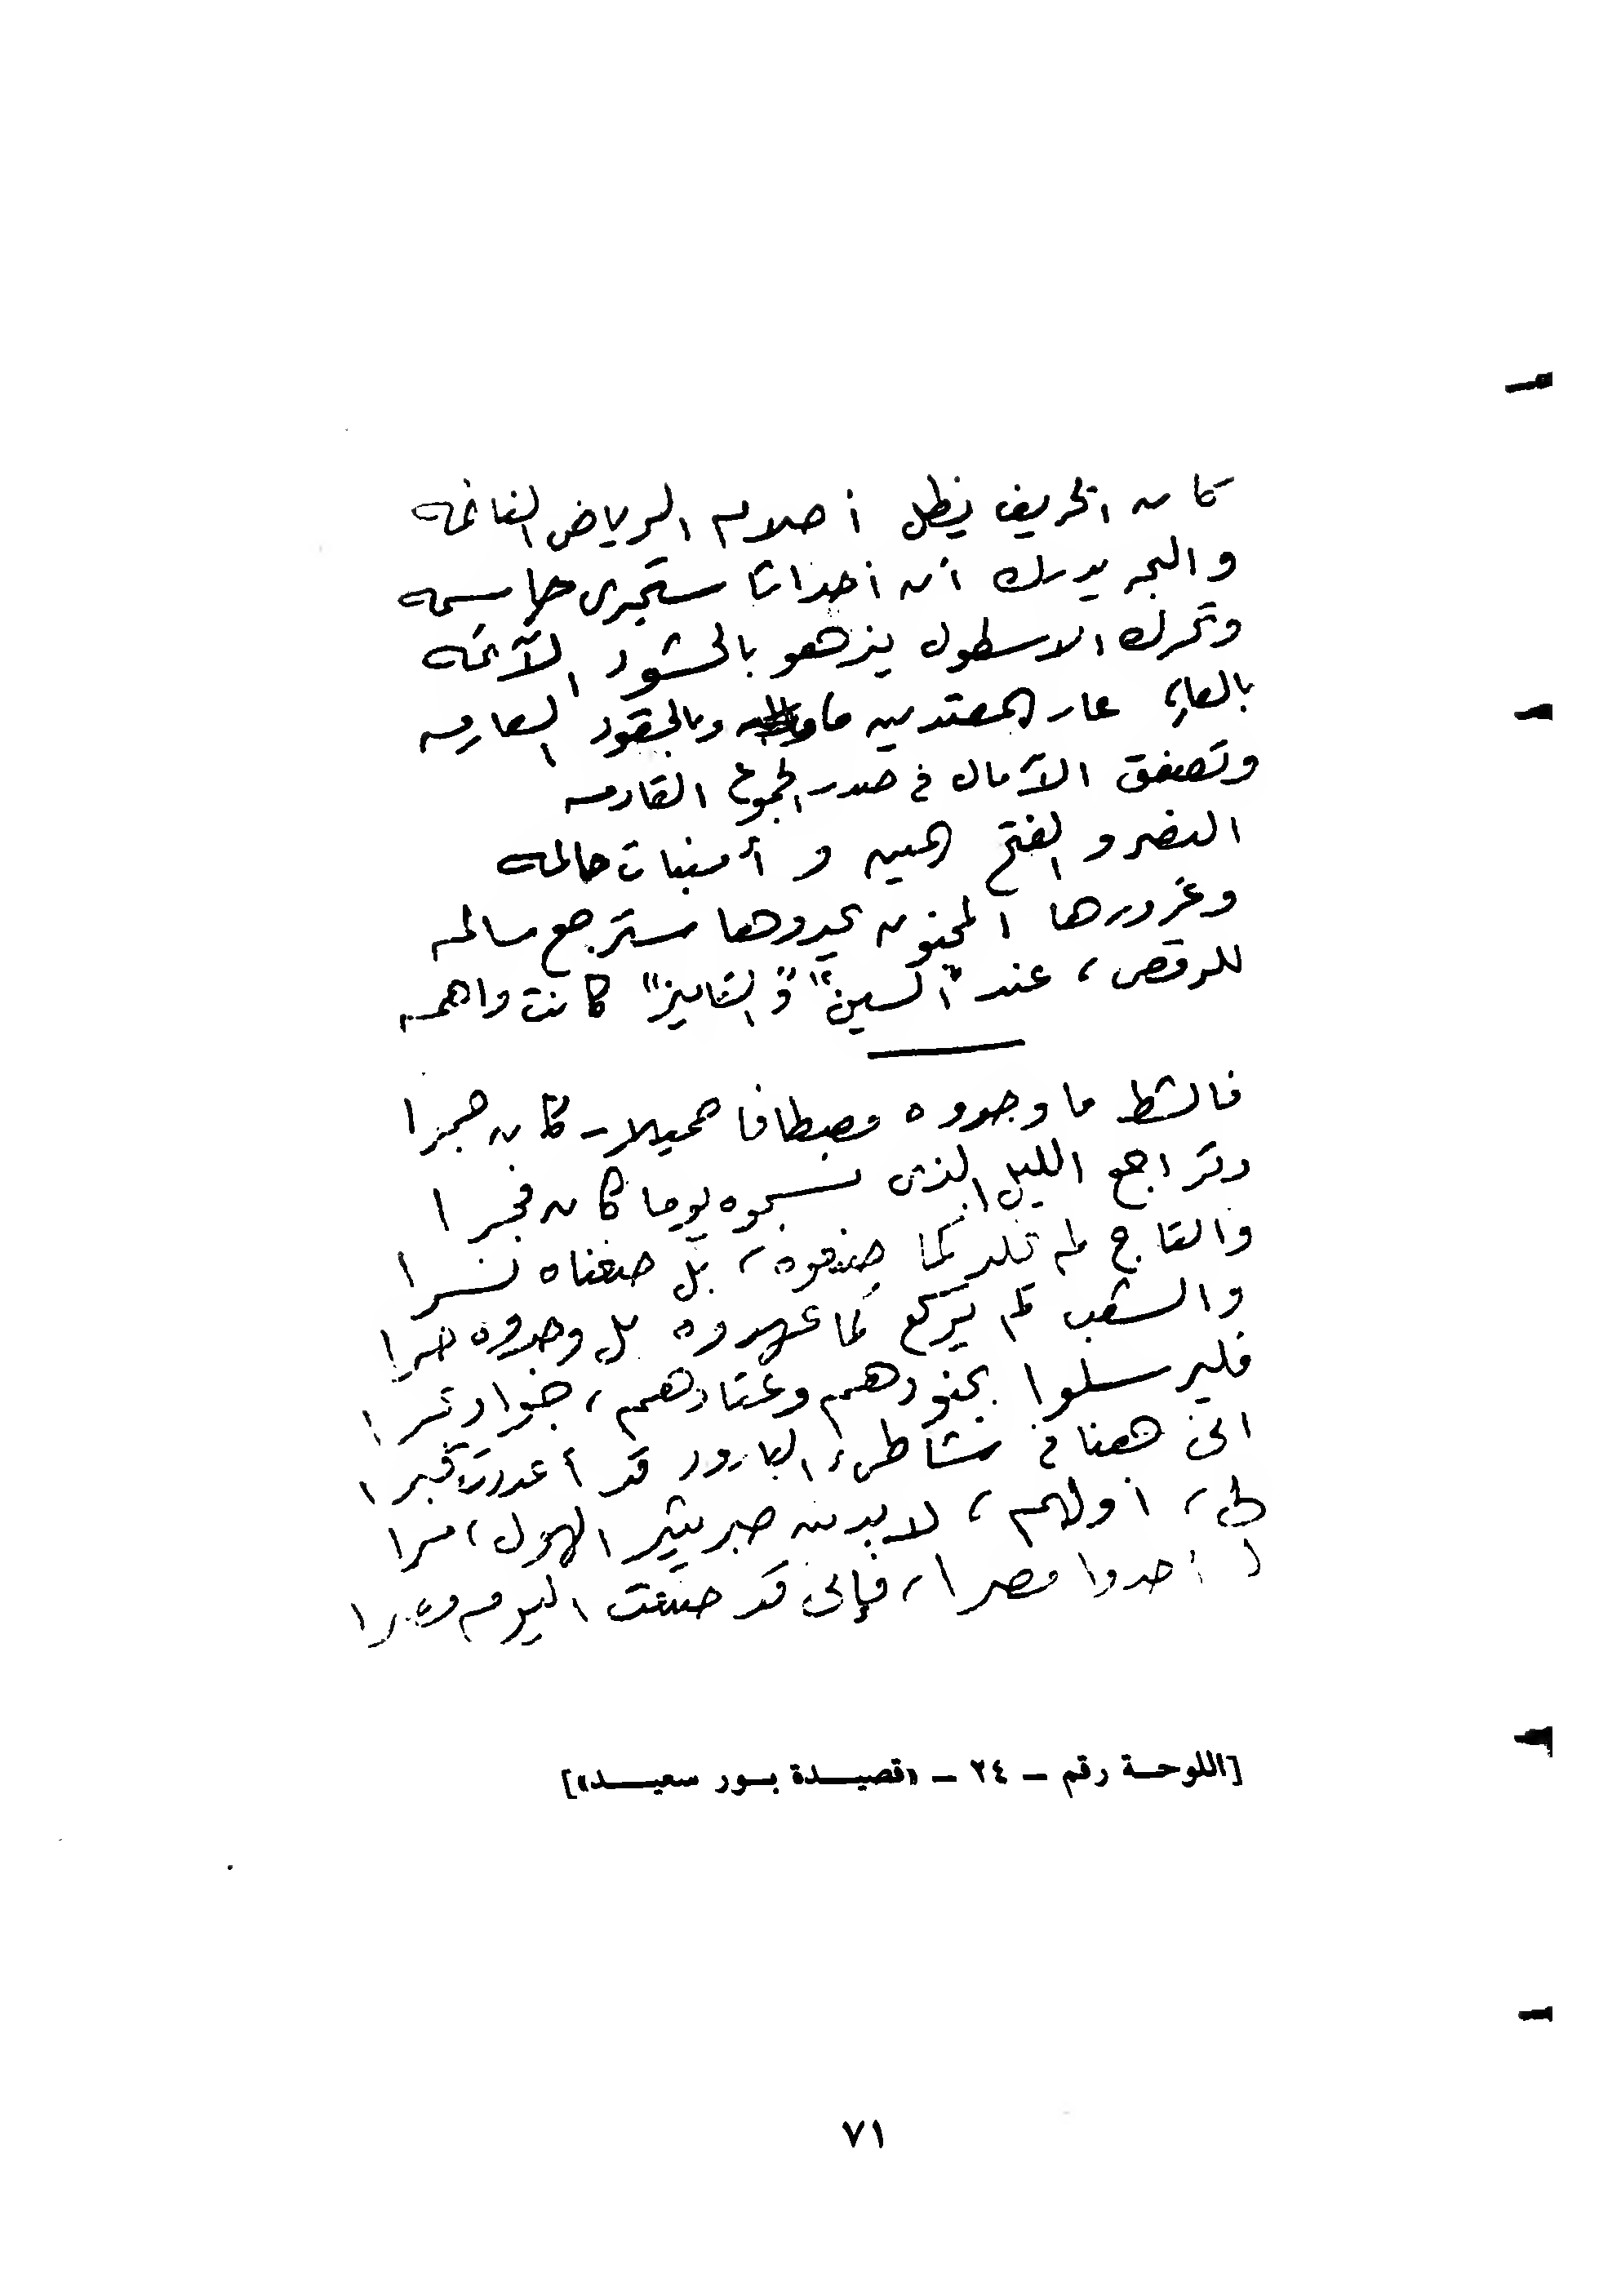 كان الخريف يظل أحلام الرياض الناغمه
والبحر يدرك أن أحداثا ستجرى حاسمه
وتحرك الاسطول يزهو بالحشود الآثمه
بالعار عار المعتدين وبالحقود العارمه
وتصفق الآمال فى صدر الجموع القادمه
النصر والفتح المبين وأمنيات حالمه
وغرورها المجنون يحدوها سترجع سالمه
للرقص، عند "السين" و"التاميز" كانت واهمه
فالشط ما وجدوه مصطافا جميلا - كان جمرا
وتراجع الليل الذى نسجوه يوما كان فجرا
والتاج لم تلد كما صنعوه، بل صنعناه نسرا
والشعب لم يركع كما عهدوه بل وجدوه حرا
فليرسلوا بجنودهم وعتادهم،
انى هنا فى شاطىء البارود قد أعددت قبرا
أولهم، لابد من صبر يثير الهول، مرا
مصرا، فإنى قد صنعت اليوم
[اللوحة رقم - ٢٤ - «قصيدة بور سعيد»]
٧١